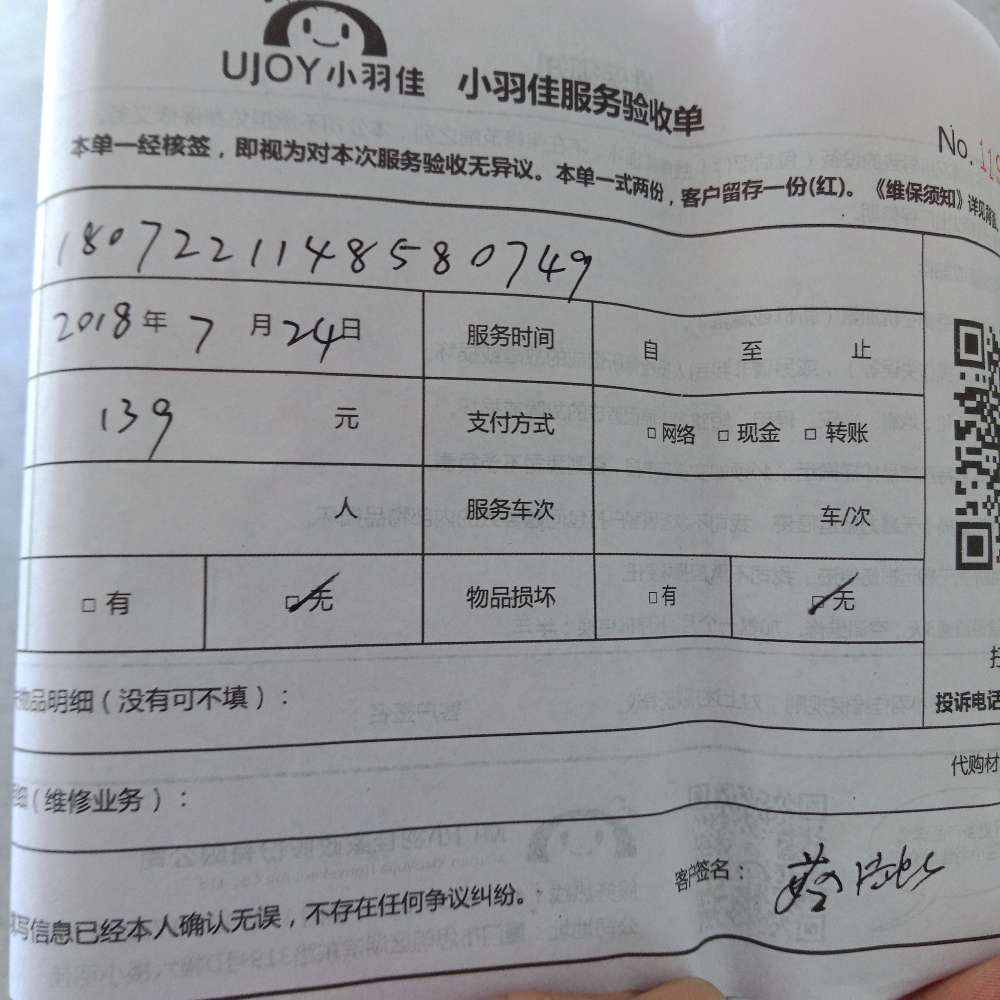 UJOY小羽佳 小羽佳服务验收单
No. 119
本单一经核签，即视为对本次服务验收无异议。本单一式两份，客户留存一份(红)。《维保须知》详见背面
1807221148580749
2018年 7 月24日 服务时间 自 至 止
139 元 支付方式 □网络 □现金 □转账
人 服务车次 车/次
□有 □无 物品损坏 □有 □无
物品明细（没有可不填）：
投诉电话
代购材
细（维修业务）：
客户签名：
写信息已经本人确认无误，不存在任何争议纠纷。